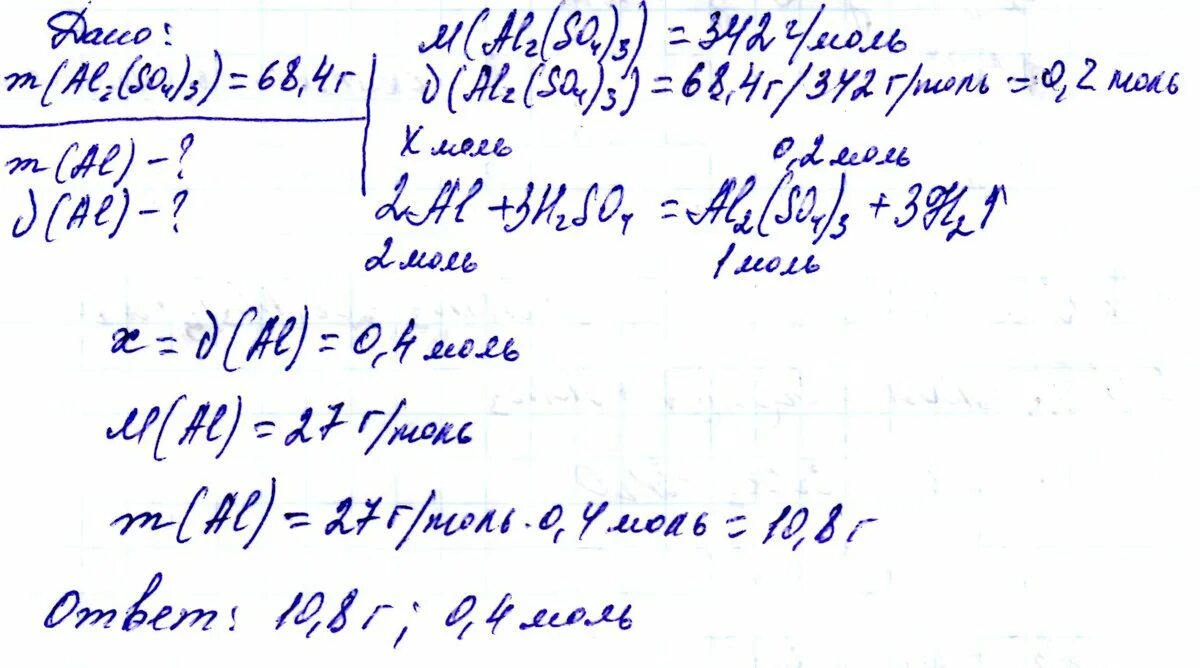 Дано:
m(Al₂(SO₄)₃) = 68,4 г
m(Al) – ?
ν(Al) – ?
M(Al₂(SO₄)₃) = 342 г/моль
ν(Al₂(SO₄)₃) = 68,4 г/342 г/моль = 0,2 моль
x моль 0,2 моль
2Al + 3H₂SO₄ = Al₂(SO₄)₃ + 3H₂↑
2 моль 1 моль
x = ν(Al) = 0,4 моль
M(Al) = 27 г/моль
m(Al) = 27 г/моль · 0,4 моль = 10,8 г
Ответ: 10,8 г; 0,4 моль